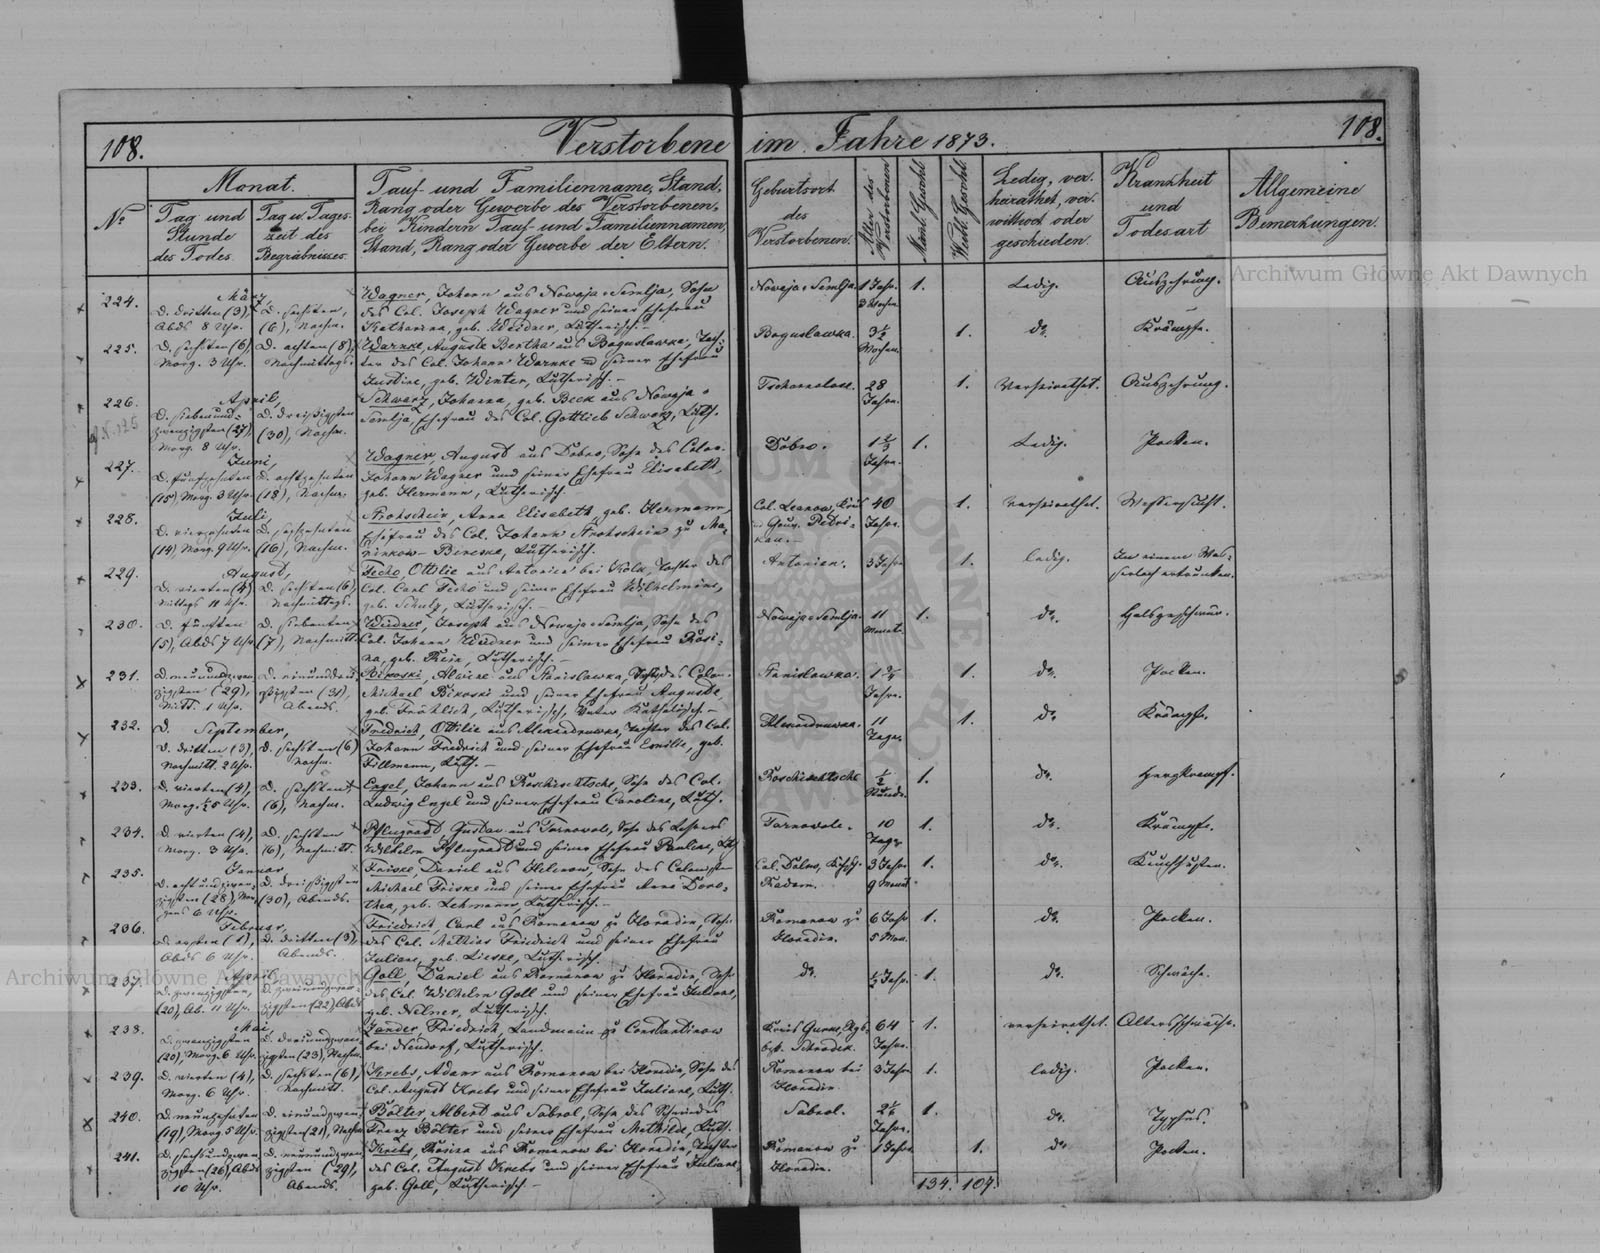 108.
Verstorbene im Jahre 1873.
108.
Nº
Monat.
Tag und Stunde des Todes.
Tag u. Tageszeit des Begräbnisses.
Tauf- und Familienname, Stand,
Rang oder Gewerbe des Verstorbenen,
bei Kindern Tauf- und Familiennamen,
Stand, Rang oder Gewerbe der Eltern.
Geburtsort
des
Verstorbenen.
Alter des Verstorbenen
Männl. Geschl.
Weibl. Geschl.
Ledig, ver-
heirathet, ver-
wittwet oder
geschieden.
Krankheit
und
Todesart
Allgemeine
Bemerkungen.
224.
März,
D. dritten (3), Abds 8 Uhr.
D. sechsten, (6), Nachm.
Wagner, Johann aus Nowaja-Semlja, Sohn
des Col. Joseph Wagner und seiner Ehefrau
Katharina, geb. Weidner, Lutherisch.
Nowaja-Semlja. 1 Jahr. 3 Wochen 1. Ledig. Auszehrung.
225.
D. sechsten (6), Morg. 3 Uhr.
D. achten (8), Nachmittags.
Warnke, Auguste Bertha aus Boguslawka, Toch-
ter des Col. Johann Warnke u seiner Ehefrau
Justine, geb. Winter, Lutherisch.
Boguslawka. 3½ Wochen. 1. do. Krämpfe.
226.
April,
D. siebenund-
zwanzigsten (27),
Morg. 8 Uhr.
D. dreißigsten
(30), Nachm.
Schwarz, Johanna, geb. Beck aus Nowaja-
Semlja, Ehefrau des Col. Gottlieb Schwarz, Luth.
28 Jahre. 1. Verheirathet. Auszehrung.
227.
Juni,
D. fünfzehnten
(15), Morg. 3 Uhr.
D. achtzehnten
(18), Nachm.
Wagner, August aus Dobro, Sohn des Colon.
Johann Wagner und seiner Ehefrau Elisabeth,
geb. Hermann, Lutherisch.
Dobro. Jahre. 1. Ledig. Pocken.
228.
Juli,
D. vierzehnten
(14), Morg. 9 Uhr.
D. sechszehnten
(16), Nachm.
Strohschein, Anna Elisabeth, geb. Hermann,
Ehefrau des Col. Johann Strohschein zu Ma-
rinkow-Bereske, Lutherisch.
Col. Leonow, Kreis
u Gouv. Petri-
kau.
40 Jahre. 1. verheirathet. Wassersucht.
229.
August,
D. vierten (4)
Mittags 11 Uhr.
D. sechsten (6),
Nachmittags.
Ottilie aus Antonien bei Kolk, Tochter des
Col. Carl und seiner Ehefrau Wilhelmine,
geb. Schulz, Lutherisch.
Antonien. 3 Jahre 1. ledig. In einem Was-
serloch ertrunken.
230.
D. fünften
(5), Abds 7 Uhr.
D. siebenten
(7), Nachmitt.
Weidner, Joseph aus Nowaja-Semlja, Sohn des
Col. Johann Weidner und seiner Ehefrau Rosi-
na, geb. Lutherisch.
Nowaja-Semlja. 11 Monate. 1. do. Halsgeschwür.
231.
D. neunundzwan-
zigsten (29),
Mitt. 1 Uhr.
D. einunddrei-
ßigsten (31),
Abends.
aus Stanislawka, des Colon.
Michael und seiner Ehefrau Auguste,
geb. Fröhlich, Lutherisch, Vater Katholisch.
Stanislawka. Jahre. 1. do. Pocken.
232.
D. September,
D. dritten (3),
Nachmitt. 2 Uhr.
D. sechsten (6)
Nachm.
Friedrich, Ottilie aus Alexandrowka, Tochter des Col.
Johann Friedrich und seiner Ehefrau Emilie, geb.
Tillmann, Luth.
Alexandrowka. 11 Tage. 1. do. Krämpfe.
233.
D. vierten (4),
Morg. 5 Uhr.
D. sechsten
(6), Nachm.
Engel, Johann aus Roschischtsche, Sohn des Col.
Ludwig Engel und seiner Ehefrau Caroline, Luth.
Roschischtsche ½ Stunde. 1. do. Herzkrampf.
234.
D. vierten (4),
Morg. 3 Uhr.
D. sechsten
(6), Nachmitt.
Pflugradt, Gustav aus Tarnowole, Sohn des Lehrers
Wilhelm Pflugradt und seiner Ehefrau Pauline, Lth
Tarnowole. 10 Tage 1. do. Krämpfe.
235.
Januar,
D. achtundzwan-
zigsten (28), Mor-
gens 6 Uhr.
D. dreißigsten
(30), Abends.
Friske, Daniel aus Helenow, Sohn des Colonisten
Michael Friske und seiner Ehefrau Anna Doro-
thea, geb. Lehmann, Lutherisch.
Radom.
3 Jahre 9 Monat. 1. do. Keuchhusten.
236.
Februar,
D. ersten (1),
Abds 6 Uhr.
D. dritten (3),
Abends.
Friedrich, Carl aus Romanow zu Horodin, Sohn
des Col. Mathias Friedrich und seiner Ehefrau
Juliane, geb. Lieske, Lutherisch.
Romanow zu
Horodin.
6 Jahr 5 Mon. 1. do. Pocken.
237.
April,
D. zwanzigsten,
(20), Ab. 11 Uhr.
D. zweiundzwan-
zigsten (22), Abds
Goll, Daniel aus Romanow zu Horodin, Sohn
des Col. Wilhelm Goll und seiner Ehefrau Juliane,
geb. Lutherisch.
do. ½ Jahr. 1. do. Schwäche.
238.
Mai,
D. zwanzigsten
(20), Morg. 6 Uhr.
D. dreiundzwan-
zigsten (23), Nachm.
Zander, Friedrich, Landmann zu Constantinow
bei Neudorf, Lutherisch.
64 Jahre. 1. verheirathet. Altersschwäche.
239.
D. vierten (4),
Morg. 6 Uhr.
D. sechsten (6),
Nachmitt.
Krebs, Adam aus Romanow bei Horodin, Sohn des
Col. August Krebs und seiner Ehefrau Juliane, Luth.
Romanow bei
Horodin
3 Jahre 1. ledig. Pocken.
240.
D. neunzehnten
(19), Morg. 5 Uhr.
D. einundzwan-
zigsten (21), Nachm
Bölter, Albert aus Sabrol, Sohn des Schmiedes
Franz Bölter und seiner Ehefrau Mathilde, Luth.
Sabrol. Jahre. 1. do. Typhus.
241.
D. sechsundzwan-
zigsten (26), Abds
10 Uhr.
D. neunundzwan-
zigsten (29),
Abends.
Krebs, Rosina aus Romanow bei Horodin, Tochter
des Col. August Krebs und seiner Ehefrau Juliane,
geb. Goll, Lutherisch.
Romanow zu
Horodin.
1 Jahr 1. do Pocken.
134. 107.
Archiwum Główne Akt Dawnych
Archiwum Główne Akt Dawnych